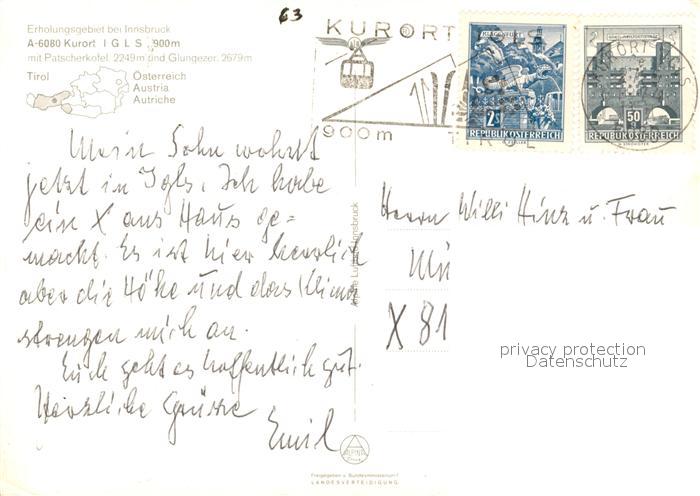 63
Erholungsgebiet bei Innsbruck
A-6080 Kurort I G L S, 900m
mit Patscherkofel, 2249m und Glungezer, 2679m
Tirol
Österreich
Austria
Autriche
KURORT
900m
TIROL
2s
REPUBLIK ÖSTERREICH
50
REPUBLIK ÖSTERREICH
Mein Sohn wohnt
jetzt in Igls. Ich habe
ein X ans Haus ge=
macht. Es ist hier herrlich
aber die Höhe und das Klima
strengen mich an.
Euch geht es hoffentlich gut.
Herzliche Grüsse
Emil
Innsbruck
Herrn Willi Hinz u. Frau
Mü
X 81
privacy protection
Datenschutz
ALPINE
Freigegeben v. Bundesministerium f.
LANDESVERTEIDIGUNG